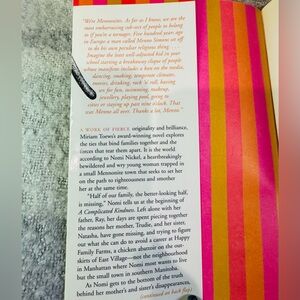 "We're Mennonites. As far as I know, we are the
most embarrassing sub-sect of people to belong
to if you're a teenager. Five hundred years ago
in Europe a man called Menno Simons set off
to do his own peculiar religious thing . . .
Imagine the least well-adjusted kid in your
school starting a breakaway clique of people
whose manifesto includes a ban on the media,
dancing, smoking, temperate climates,
movies, drinking, rock 'n' roll, having
sex for fun, swimming, makeup,
jewellery, playing pool, going to
cities or staying up past nine o'clock. That
was Menno all over. Thanks a lot, Menno."
A WORK OF FIERCE originality and brilliance,
Miriam Toews's award-winning novel explores
the ties that bind families together and the
forces that tear them apart. It is the world
according to Nomi Nickel, a heartbreakingly
bewildered and wry young woman trapped in
a small Mennonite town that seeks to set her
on the path to righteousness and smother
her at the same time.
"Half of our family, the better-looking half,
is missing," Nomi tells us at the beginning of
A Complicated Kindness. Left alone with her
father, Ray, her days are spent piecing together
the reasons her mother, Trudie, and her sister,
Natasha, have gone missing, and trying to figure
out what she can do to avoid a career at Happy
Family Farms, a chicken abattoir on the out-
skirts of East Village—not the neighbourhood
in Manhattan where Nomi most wants to live
but the small town in southern Manitoba.
As Nomi gets to the bottom of the truth
behind her mother's and sister's disappearances,
(continued on back flap)